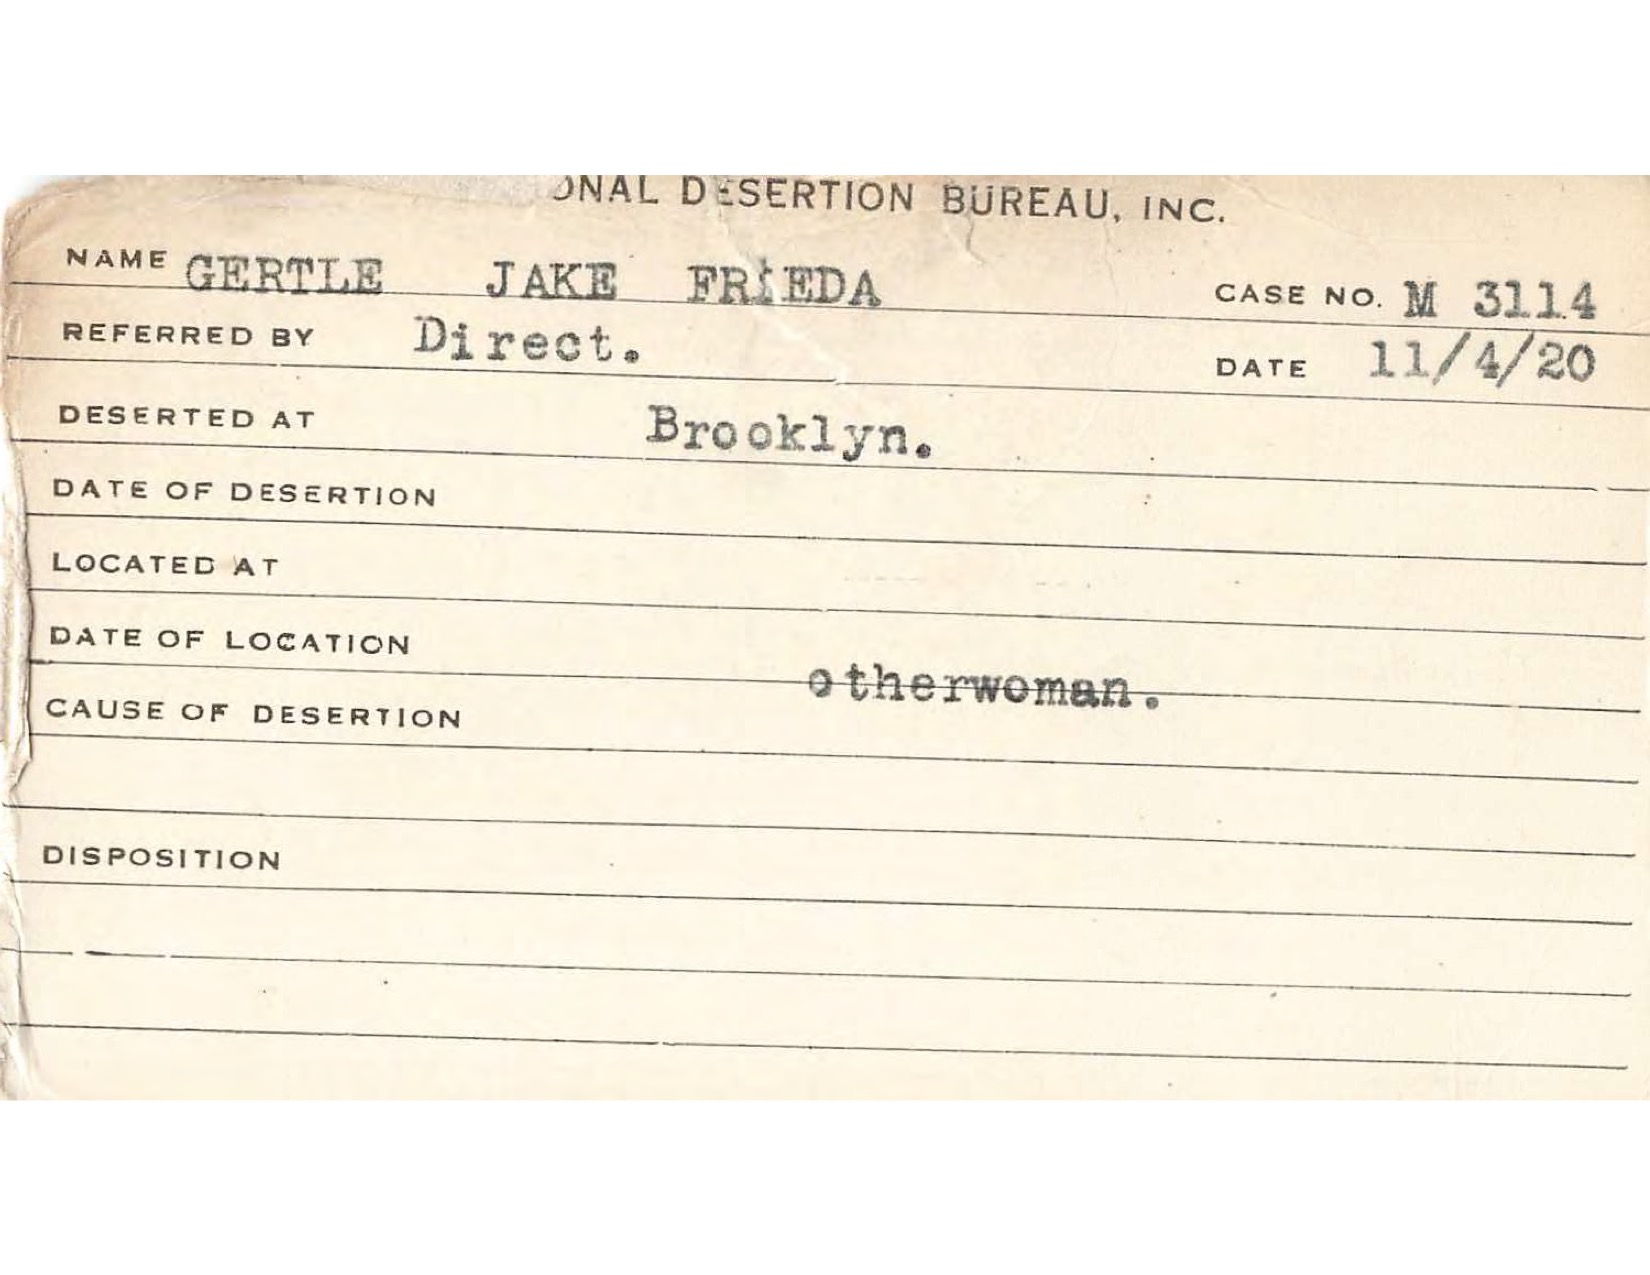 ONAL DESERTION BUREAU, INC.
NAME GERTLE JAKE FRIEDA CASE NO. M 3114
REFERRED BY Direct. DATE 11/4/20
DESERTED AT Brooklyn.
DATE OF DESERTION
LOCATED AT
DATE OF LOCATION
CAUSE OF DESERTION otherwoman.
DISPOSITION